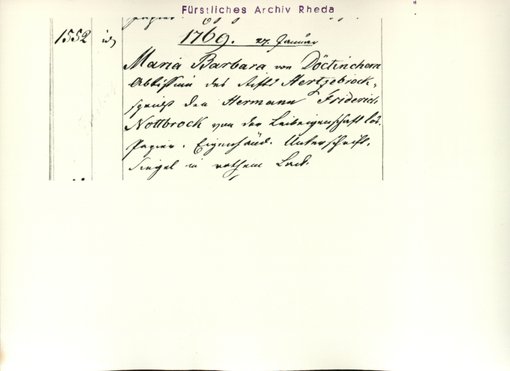 Fürstliches Archiv Rheda
1552 id 1769. 27. Januar
Maria Barbara von Döctinchem
Abbissin des Stifts Hertzebrock,
spricht den Hermann Friderich
Nottbrock von der Leibeigenschaft los.
Papier. Eigenhänd. Unterschrift.
Siegel in rothem Lack.